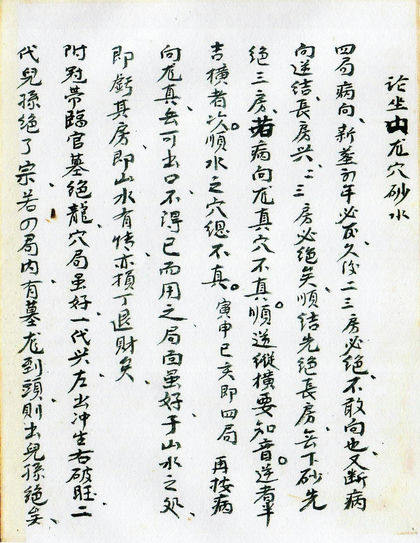 论坐山龙穴砂水
四局病向、新葬初年必旺久後二三房必绝、不敢向也、又断病
向逆结長房兴、二三房必绝矣、順结先绝長房、無下砂先
绝三房、若病向龙真穴不真。順逆縱横要知音。逆者半
吉横者次。順水之穴總不真。寅申巳亥即四局 再按病
向龙真無可出口不得已而用之局向虽好于山水之处、
即虧其房、即山水有情亦損丁退財矣
附冠带臨官墓绝龍、穴局虽好一代兴左出冲生右破旺、二
代兒孫绝了宗、若四局内有墓龙到頭、則出兒孫绝矣